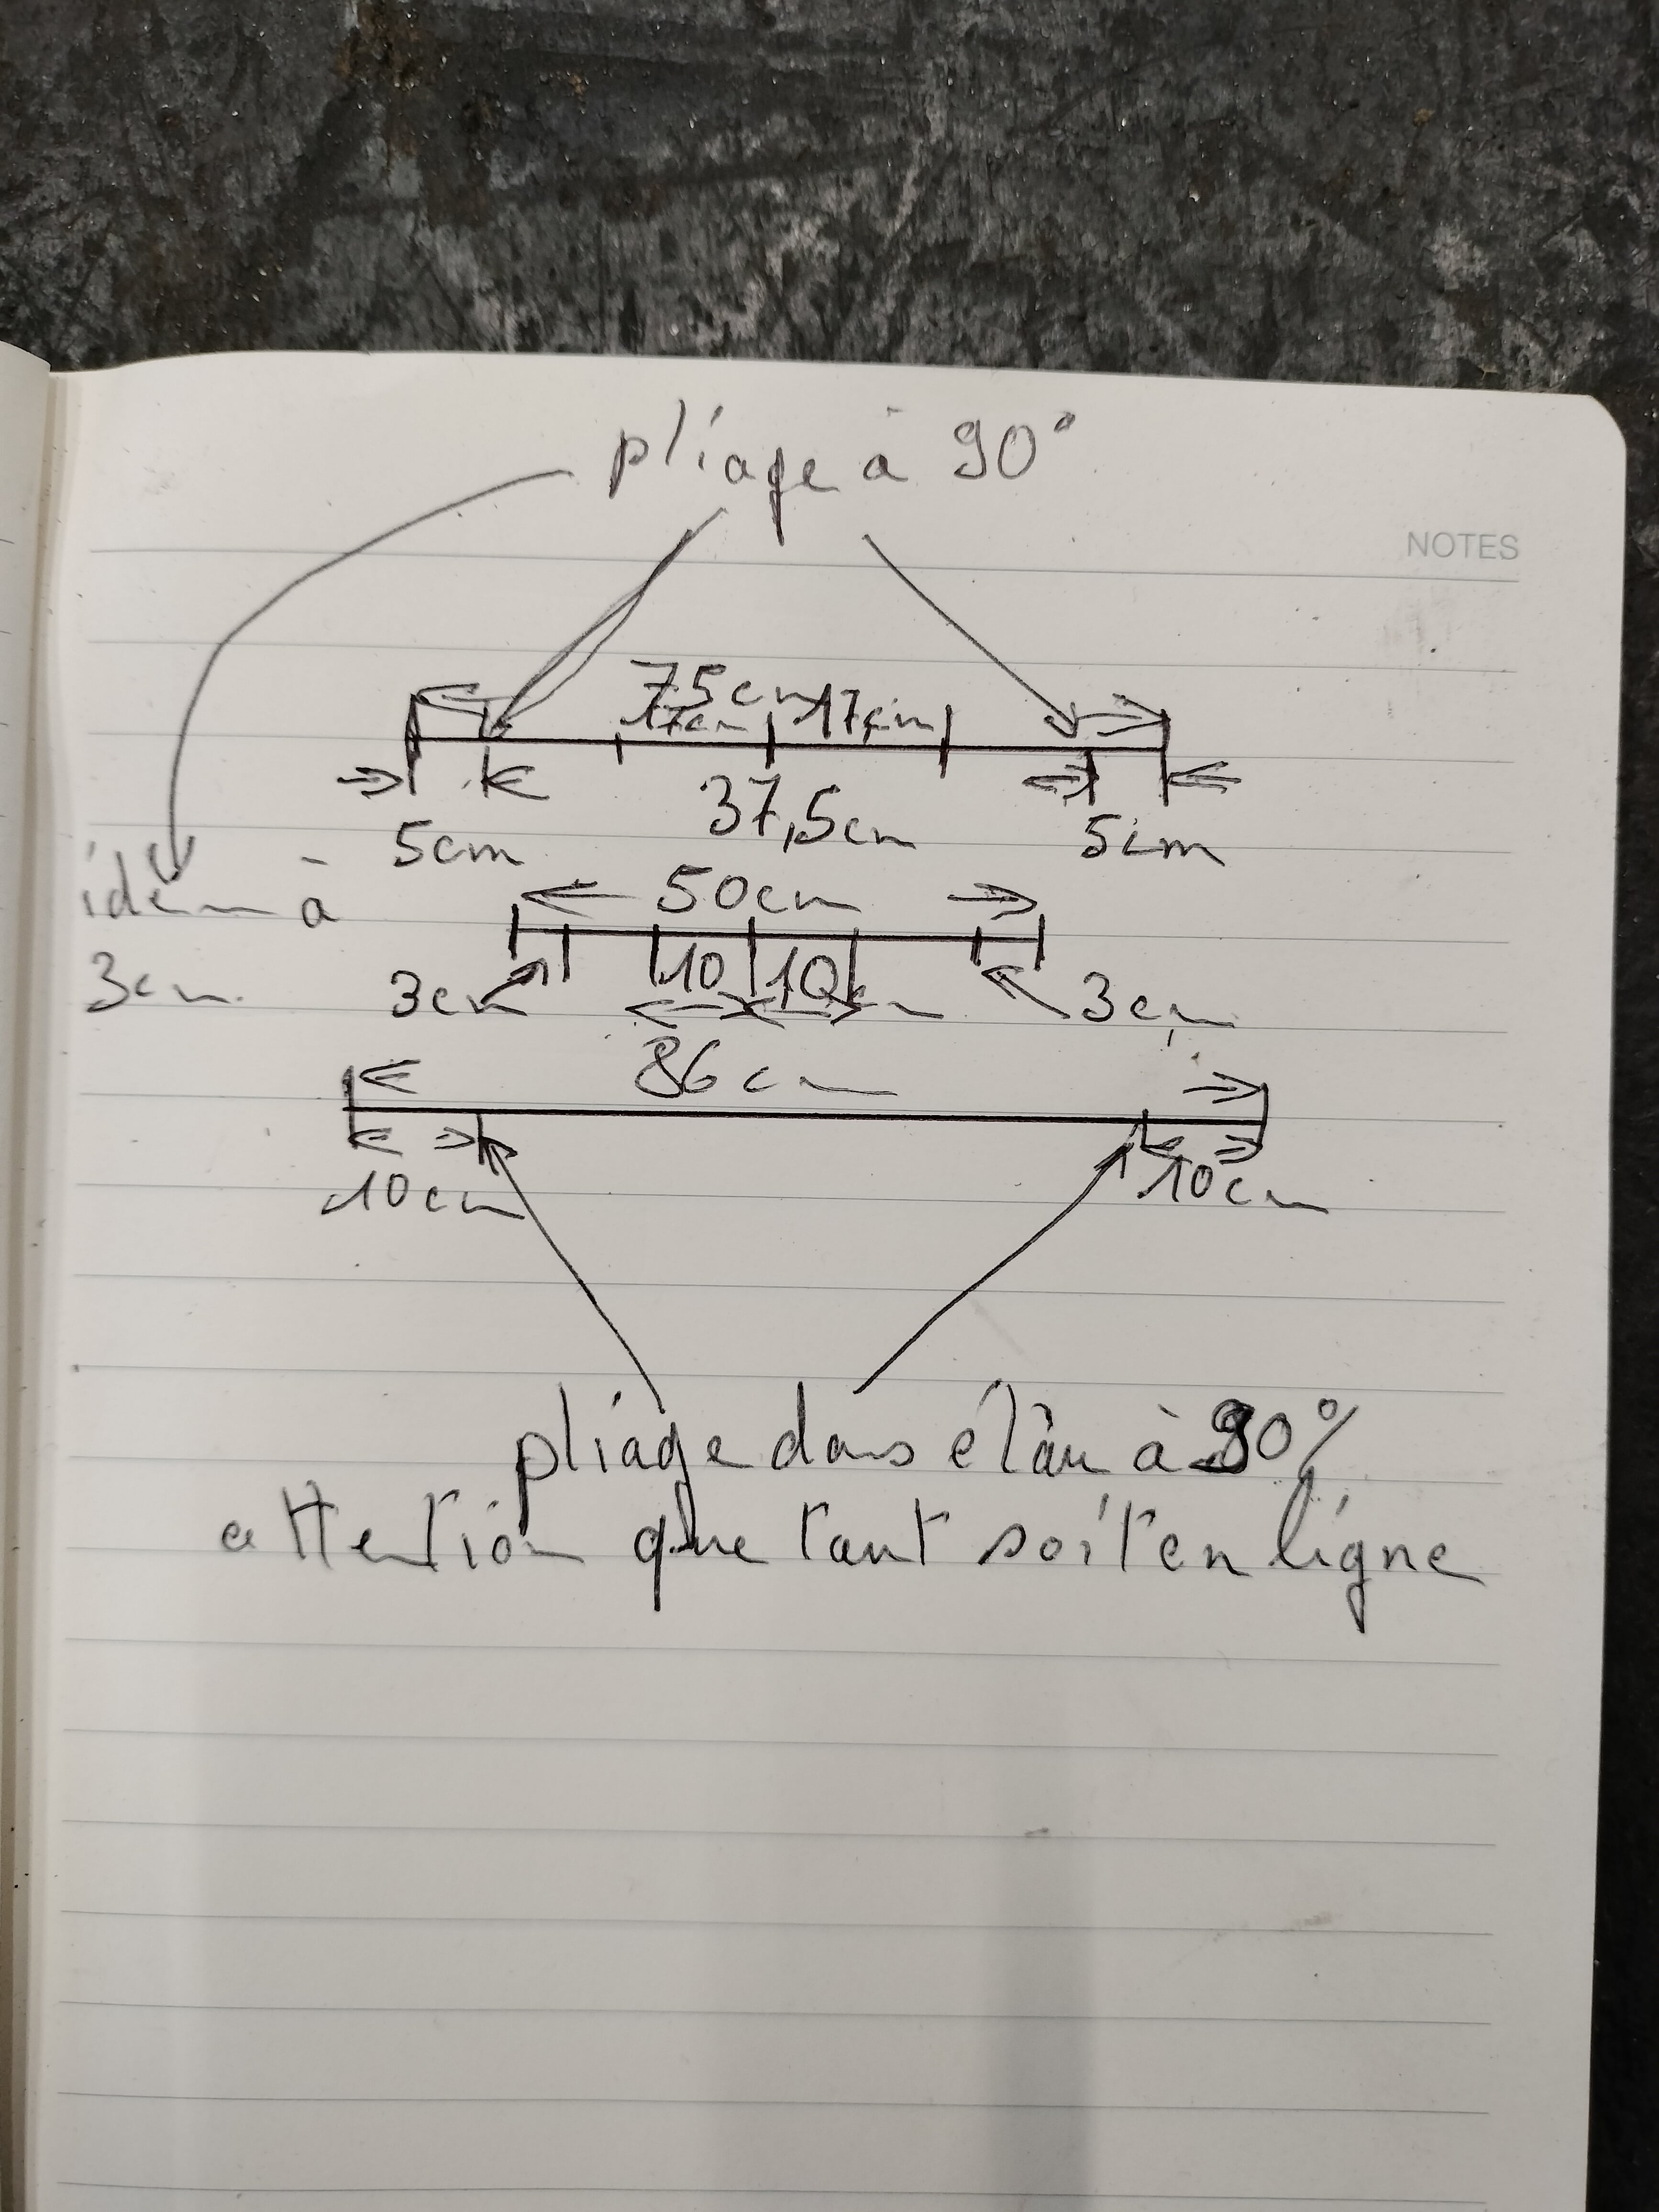 pliage à 90°
NOTES
75cm
17cm 17cm
37,5cm
5cm 5cm
50cm
idem à
3cm
10 10cm
3cm 3cm
86cm
10cm 10cm
pliage dans étau à 90%
attention que tout soit en ligne